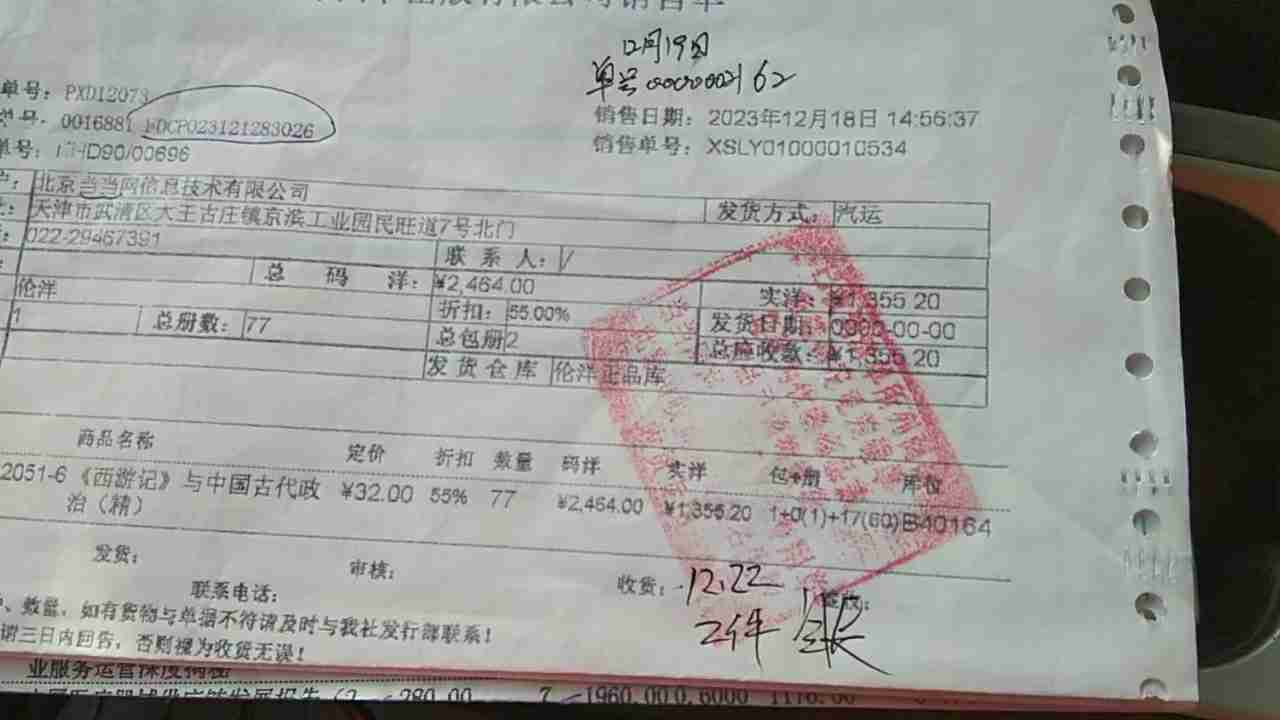 出版有限公司销售单
12月19日
单号0000002162
单号: PXD12073
0016881 FDCP023121283026
销售日期: 2023年12月18日 14:56:37
销售单号: XSLY01000010534
单号: HD90/00696
北京当当网信息技术有限公司
发货方式: 汽运
天津市武清区大王古庄镇京滨工业园民旺道7号北门
022-29467391
联系人:
总码洋: ¥2,464.00
实洋: ¥1,355.20
伦洋
折扣: 55.00%
发货日期: 0000-00-00
1
总册数: 77
总包册2
总应收款: ¥1,355.20
发货仓库 伦洋正品库
商品名称 定价 折扣 数量 码洋 实洋 包+册 库位
2051-6 《西游记》与中国古代政 ¥32.00 55% 77 ¥2,464.00 ¥1,355.20 1+0(1)+17(60) B40164
治(精)
发货:
审核:
收货: 12.22
联系电话:
2件
、数量,如有货物与单据不符请及时与我社发行部联系!
请三日内回告,否则视为收货无误!
业服务运营深度揭秘